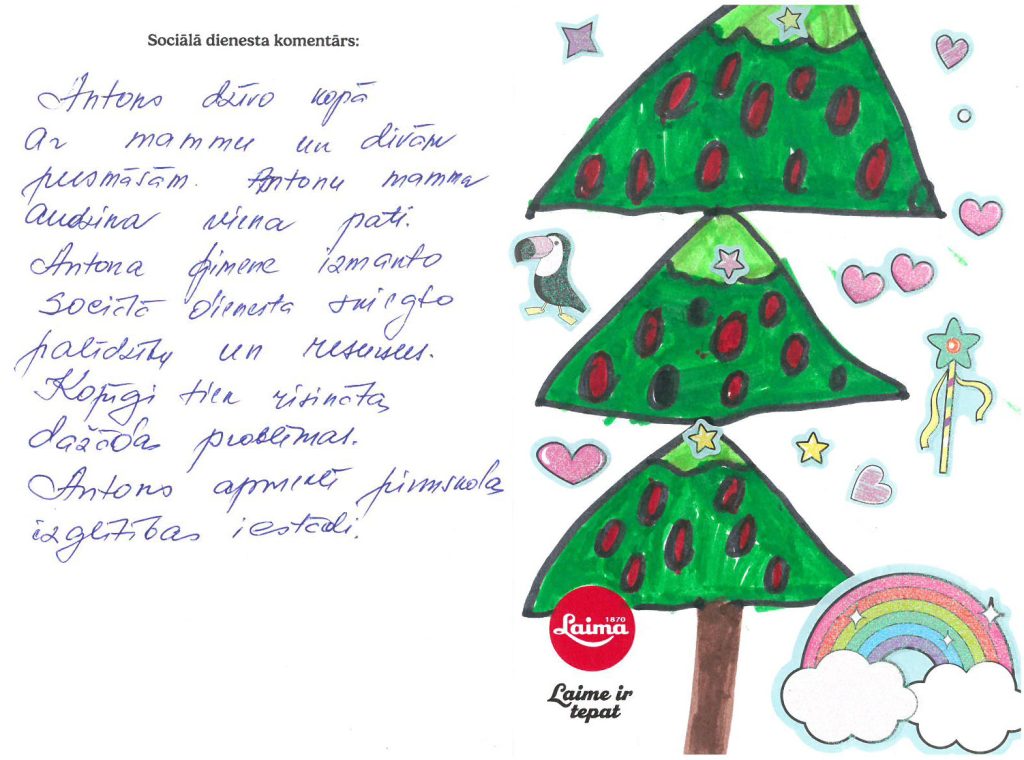 Sociālā dienesta komentārs:
Antons dzīvo kopā
Ar mammu un divām
pusmāsām. Antonu mamma
audzina viena pati.
Antona ģimene izmanto
Sociālā dienesta sniegto
palīdzību un resursus.
Kopīgi tiek risinātas
dažādas problēmas.
Antons apmeklē pirmskolas
izglītības iestādi.
Laima
1870
Laime ir
tepat